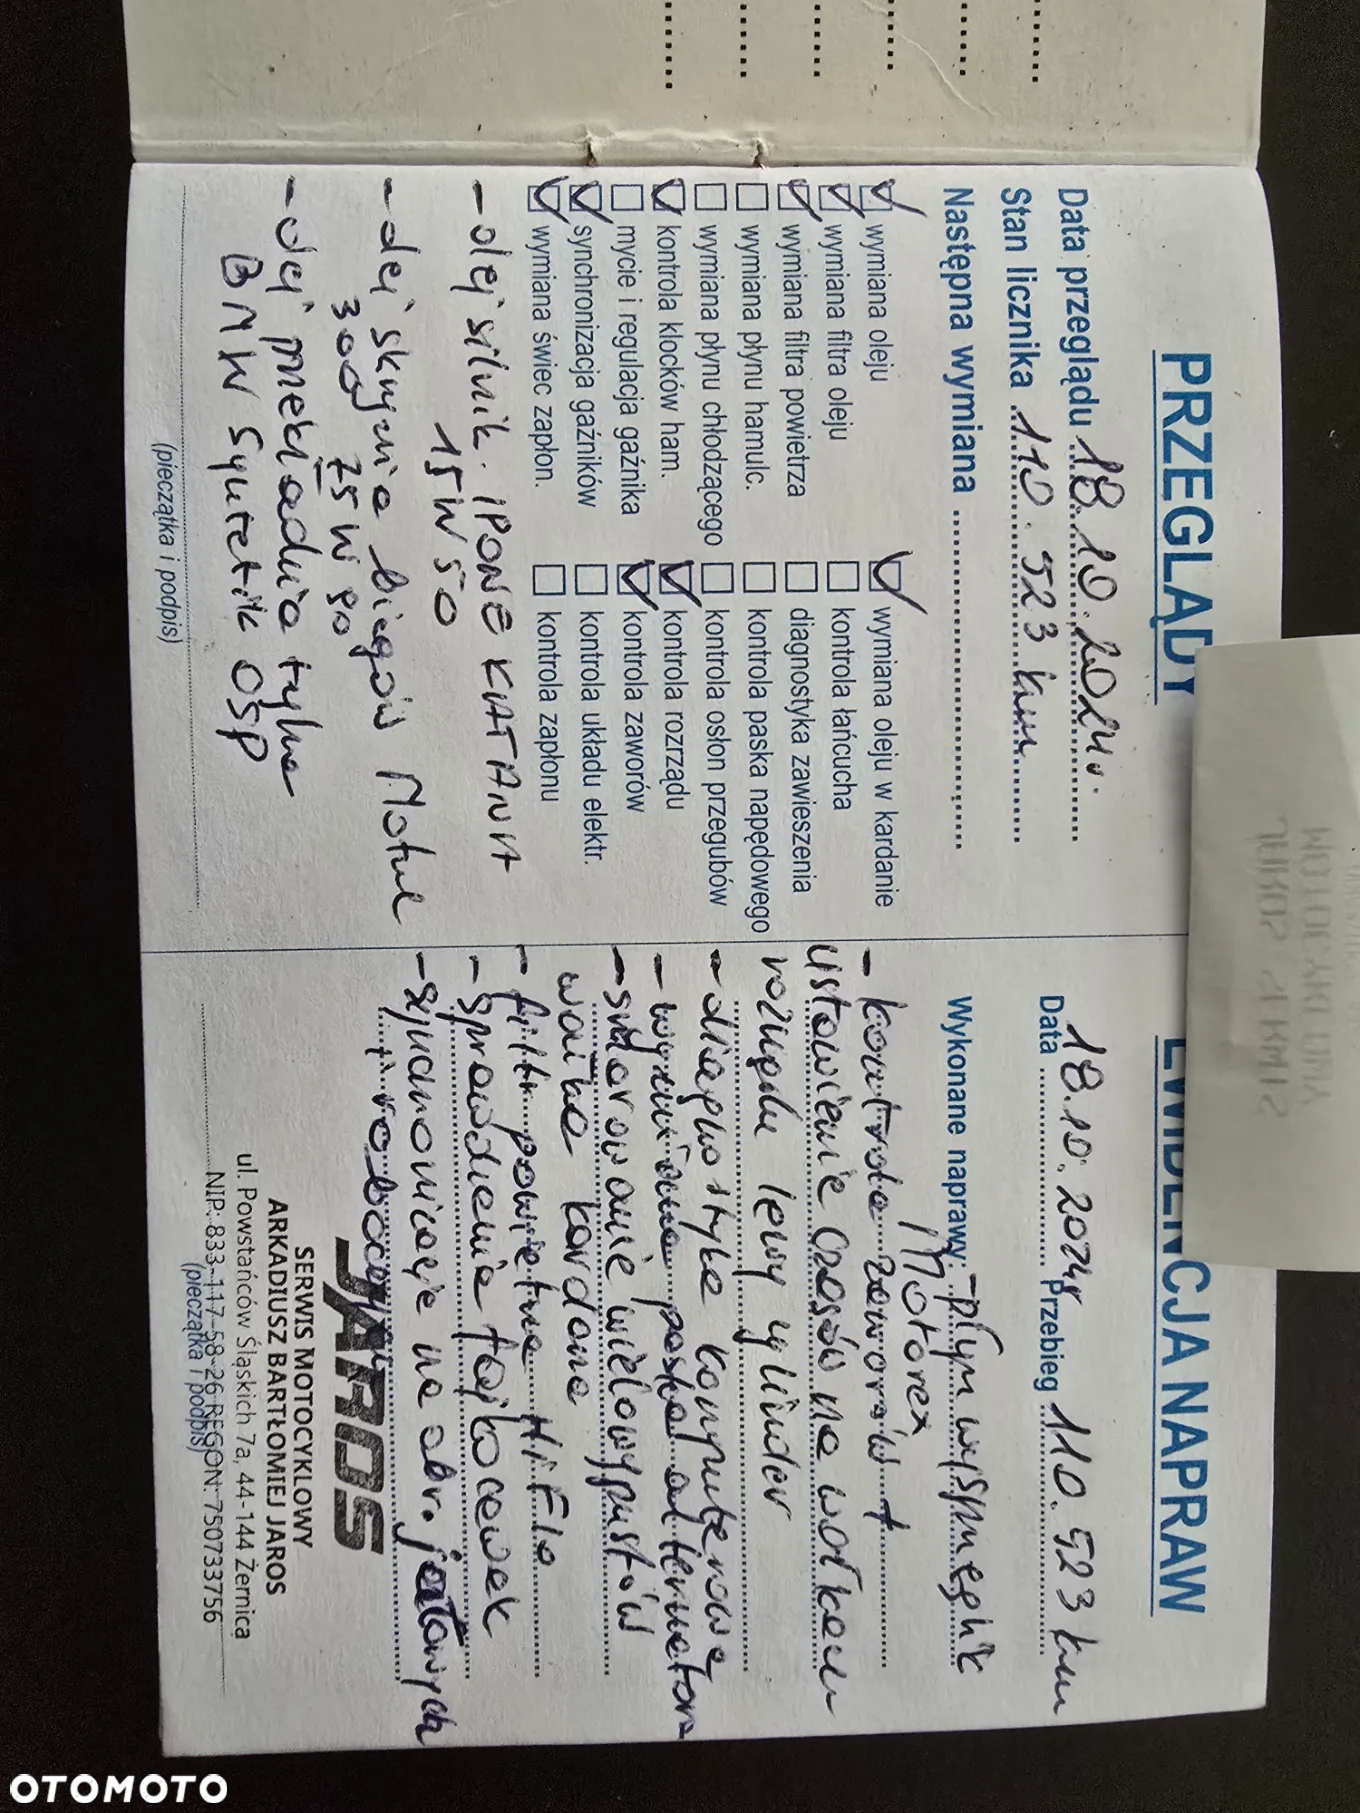 PRZEGLĄDY
Data przeglądu 18.10.2024r.
Stan licznika 110.523 km
Następna wymiana
wymiana oleju
wymiana filtra oleju
wymiana filtra powietrza
wymiana płynu hamulc.
wymiana płynu chłodzącego
kontrola klocków ham.
mycie i regulacja gaźnika
synchronizacja gaźników
wymiana świec zapłon.
wymiana oleju w kardanie
kontrola łańcucha
diagnostyka zawieszenia
kontrola paska napędowego
kontrola osłon przegubów
kontrola rozrządu
kontrola zaworów
kontrola układu elektr.
kontrola zapłonu
- olej silnik. IPONE KATANA
15W50
- olej skrzynia biegów Motul
300 75W90
- olej przekładnia tylna
BMW Syntetik OSP
(pieczątka i podpis)
EWIDENCJA NAPRAW
Data 18.10.2024r Przebieg 110.523 km
Wykonane naprawy: - płyn wysprzęglik
Motorex
- kontrola zaworów +
ustawienie czasów na wałkau
rozrządu lewy cylinder
- diagnostyka komputerowa
- wymiana paska alternatora
- smarowanie wielowypustów
wałka kardana
- filtr powietrza HiFlo
- sprawdzenie fajkocewek
- synchronizacja na obr. jałowych
i roboczych
JAROS
SERWIS MOTOCYKLOWY
ARKADIUSZ BARTŁOMIEJ JAROS
ul. Powstańców Śląskich 7a, 44-144 Żernica
NIP: 833-117-58-26 REGON: 750733756
(pieczątka i podpis)
OTOMOTO